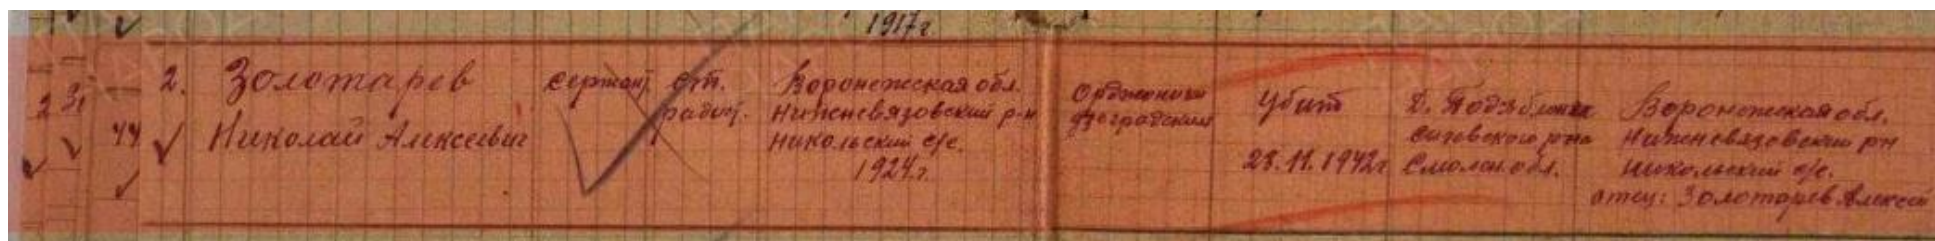 1917г
2. Золотарев
Николай Алексеевич
44
2 31
сержант
ст.
радист.
Воронежская обл.
Нижневязовский р-н
Никольский с/с.
1924г.
Орджоники
дзеградским
Убит
28.11.1942г
Д.
Сычевского р-на
Смолен. обл.
Воронежская обл.
Нижневязовский рн
Никольский с/с.
отец: Золотарев Алексей